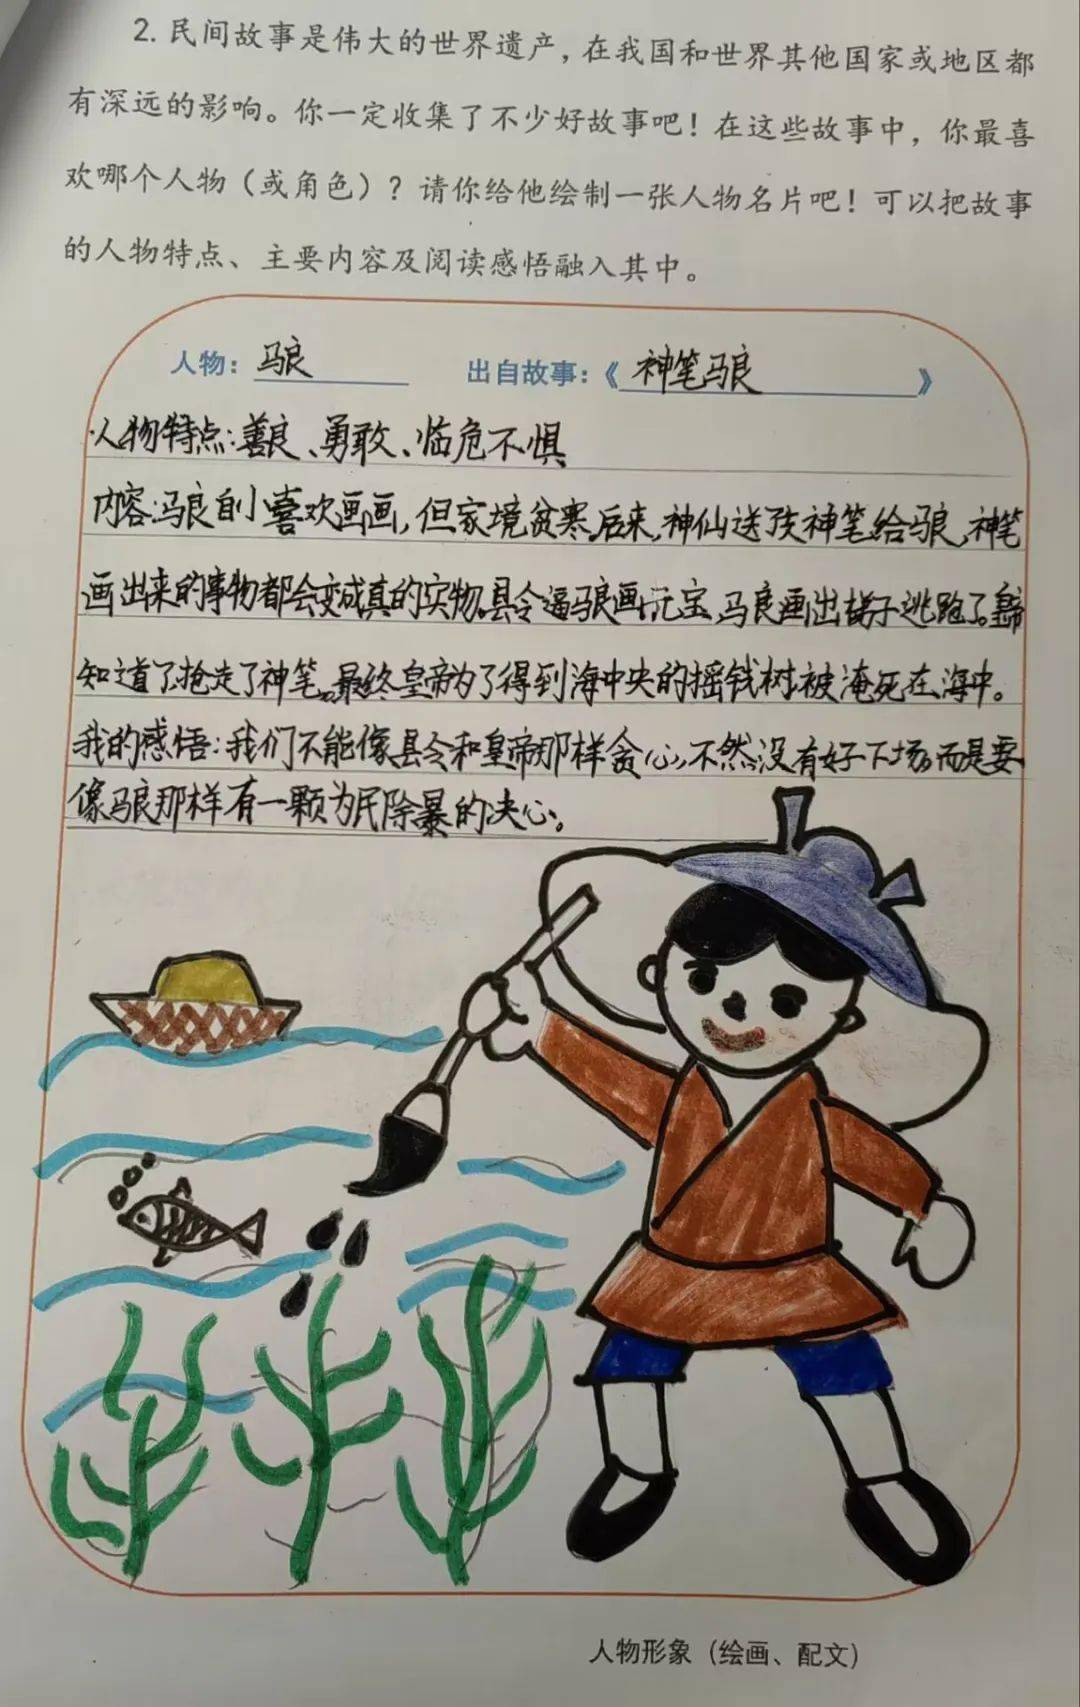 2. 民间故事是伟大的世界遗产，在我国和世界其他国家或地区都
有深远的影响。你一定收集了不少好故事吧！在这些故事中，你最喜
欢哪个人物（或角色）？请你给他绘制一张人物名片吧！可以把故事
的人物特点、主要内容及阅读感悟融入其中。
人物：马良 出自故事：《神笔马良》
人物特点：善良、勇敢、临危不惧
内容：马良自小喜欢画画，但家境贫寒。后来，神仙送神笔给马良，神笔
画出来的事物都会变成真的实物。县令逼马良画元宝，马良画出梯子逃跑了。皇帝
知道了抢走了神笔。最终皇帝为了得到海中央的摇钱树被淹死在海中。
我的感悟：我们不能像县令和皇帝那样贪心，不然没有好下场。而是要
像马良那样有一颗为民除暴的决心。
人物形象（绘画、配文）